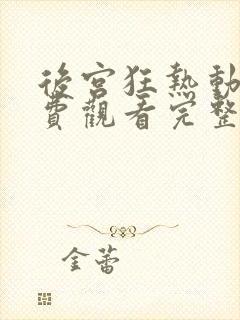 後宮狂熱動
費觀看完整
金蕾